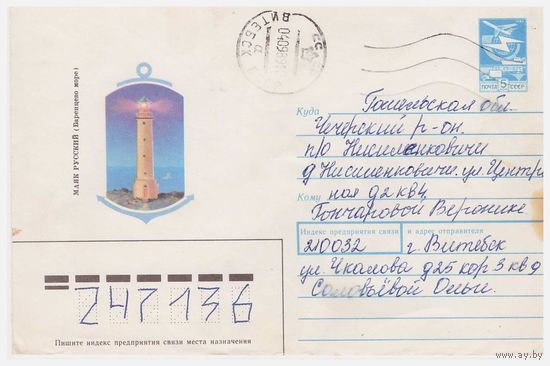 ВИТЕБСК
ПОЧТА СССР
5
МАЯК РУССКИЙ (Баренцево море)
Куда Гомельская обл.
Чечерский р-он.
п/о Нисимковичи
д Нисимковичи. ул. Центральная д 2 кв 4
Кому
Гончаровой Веронике
Индекс предприятия связи и адрес отправителя
210032 г. Витебск
ул. Чкалова д 25 кор 3 кв 9
Соловьёвой Ольги.
247136
Пишите индекс предприятия связи места назначения
www.ay.by